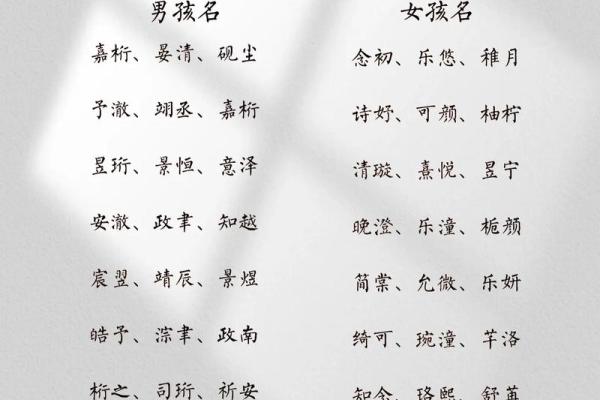 男孩名
嘉桁、晏清、砚尘
予澈、翊丞、嘉桁
昱珩、景恒、意泽
安澈、政聿、知越
宸翌、靖辰、景煜
皓予、淙聿、政南
桁之、司珩、祈安
女孩名
念初、乐悠、稚月
诗妤、可颜、柚柠
清璇、熹悦、昱宁
晚澄、乐潼、栀颜
简棠、允微、乐妍
绮可、琬潼、芊洛
知念、珞熙、舒苒